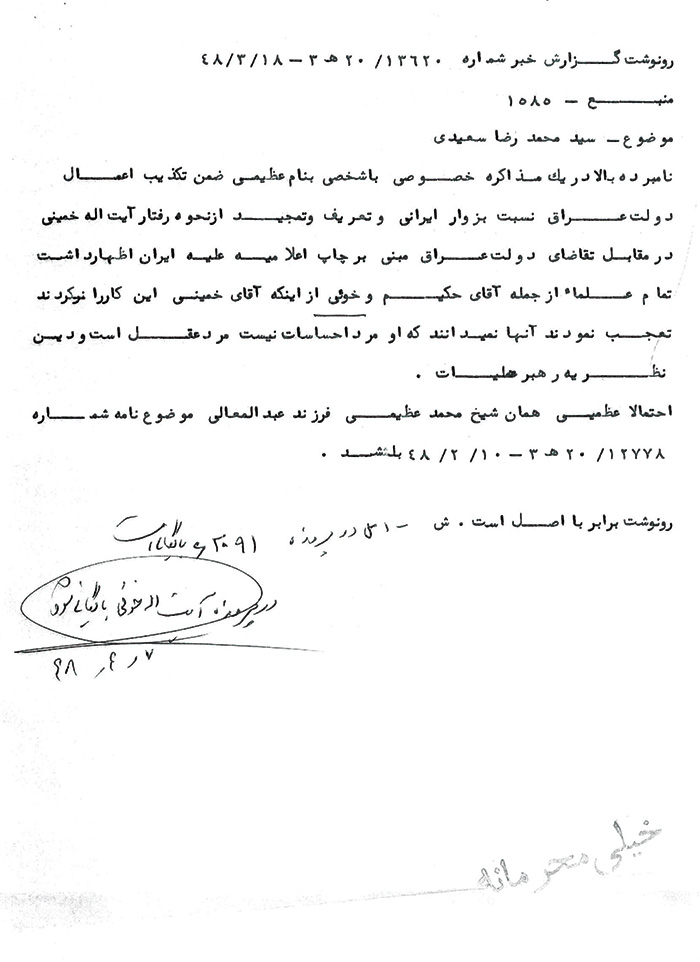 رونوشت گزارش خبر شماره ۱۳۶۲۰/ ۲۰ هـ ۳ – ۴۸/۳/۱۸
منبع – ۱۵۸۵
موضوع – سید محمد رضا سعیدی
نامبرده بالا در یك مذاکره خصوصی باشخصی بنام عظیمی ضمن تکذیب اعمال
دولت عراق نسبت بزوار ایرانی و تعریف وتمجید ازنحوه رفتار آیت اله خمینی
در مقابل تقاضای دولت عراق مبنی بر چاپ اعلامیه علیه ایران اظهارداشت
تمام علماء از جمله آقای حکیم و خوئی از اینکه آقای خمینی این کاررا نوکردند
تعجب نمودند آنها نمیدانند که او مرد احساسات نیست مردعقل است ودین
نظریه رهبر عملیات .
احتمالا عظمیی همان شیخ محمد عظیمی فرزند عبدالمعالی موضوع نامه شماره
۱۲۷۷۸/ ۲۰ هـ ۳ – ۱۰/ ۲/ ۴۸ باشد .
رونوشت برابر با اصل است . ش
– اصل در پرونده ۳۰۹۱ بایگانی است
در پرونده آیت اله خوئی بایگانی شود
۷ ر ۴ ر ۴۸
خیلی محرمانه